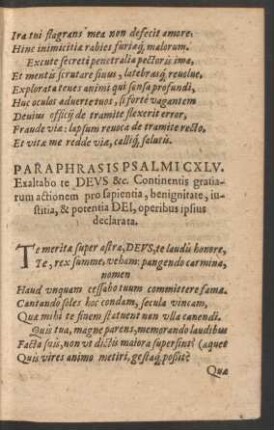 Ira tui flagrans mea non defecit amore.
Hinc inimicitiæ rabies furiæq́; malorum.
Excute secreti penetralia pectoris ima,
Et mentis scrutare sinus, latebrasq́; reuolue,
Explorata tenes animi qui sensa profundi,
Huc oculos aduerte tuos, si forte vagantem
Deuius officij de tramite flexerit error,
Fraude viæ: lapsum reuoca de tramite recto,
Et vitæ me redde viæ, calliq́; salutis.
PARAPHRASIS PSALMI CXLV.
Exaltabo te DEVS &c. Continentis gratia-
rum actionem pro sapientia, benignitate, iu-
stitia, & potentia DEI, operibus ipsius
declarata.
Te merita super astra, DEVS, te laudū honore,
Te, rex summe, veham: pangendo carmina,
nomen
Haud vnquam cessabo tuum committere famæ.
Cantando soles hoc condam, secula vincam,
Quæ mihi te finem statuent non vlla canendi.
Quis tua, magne parens, memorando laudibus
Facta suis, non vt dictis maiora supersint? (æquet
Quis vires animo metiri, gestaq́; possit?
Quæ